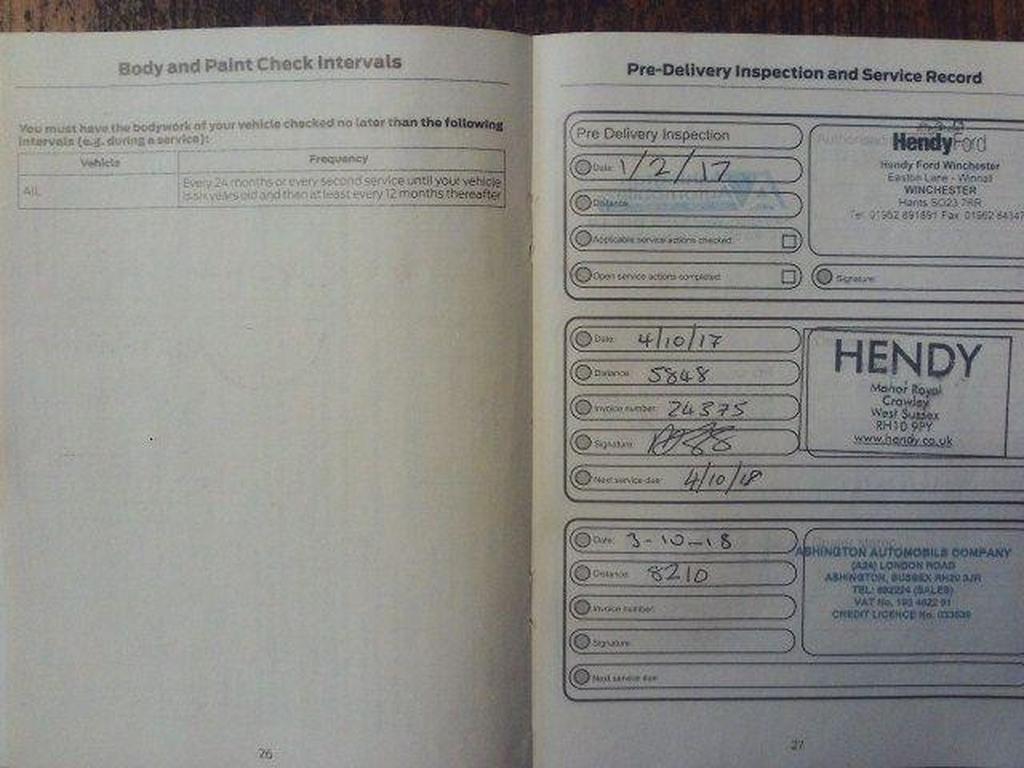 Body and Paint Check Intervals
You must have the bodywork of your vehicle checked no later than the following
intervals (e.g. during a service):
Vehicle Frequency
ALL Every 24 months or every second service until your vehicle
is six years old and then at least every 12 months thereafter
26
Pre-Delivery Inspection and Service Record
Pre Delivery Inspection
Date: 1/2/17
Distance:
Applicable service actions checked:
Open service actions completed:
HendyFord
Hendy Ford Winchester
Easton Lane - Winnall
WINCHESTER
Hants SO23 7RR
Tel: 01962 891891 Fax: 01962 84347
Signature:
Date: 4/10/17
Distance: 5848
Invoice number: 24375
Signature:
Next service due: 4/10/18
HENDY
Manor Royal
Crawley
West Sussex
RH10 9PY
www.hendy.co.uk
Date: 3-10-18
Distance: 8210
Invoice number:
Signature:
Next service due:
ASHINGTON AUTOMOBILE COMPANY
(A24) LONDON ROAD
ASHINGTON, SUSSEX RH20 3JR
TEL: 892224 (SALES)
VAT No. 193 4622 91
CREDIT LICENCE No. 033639
27